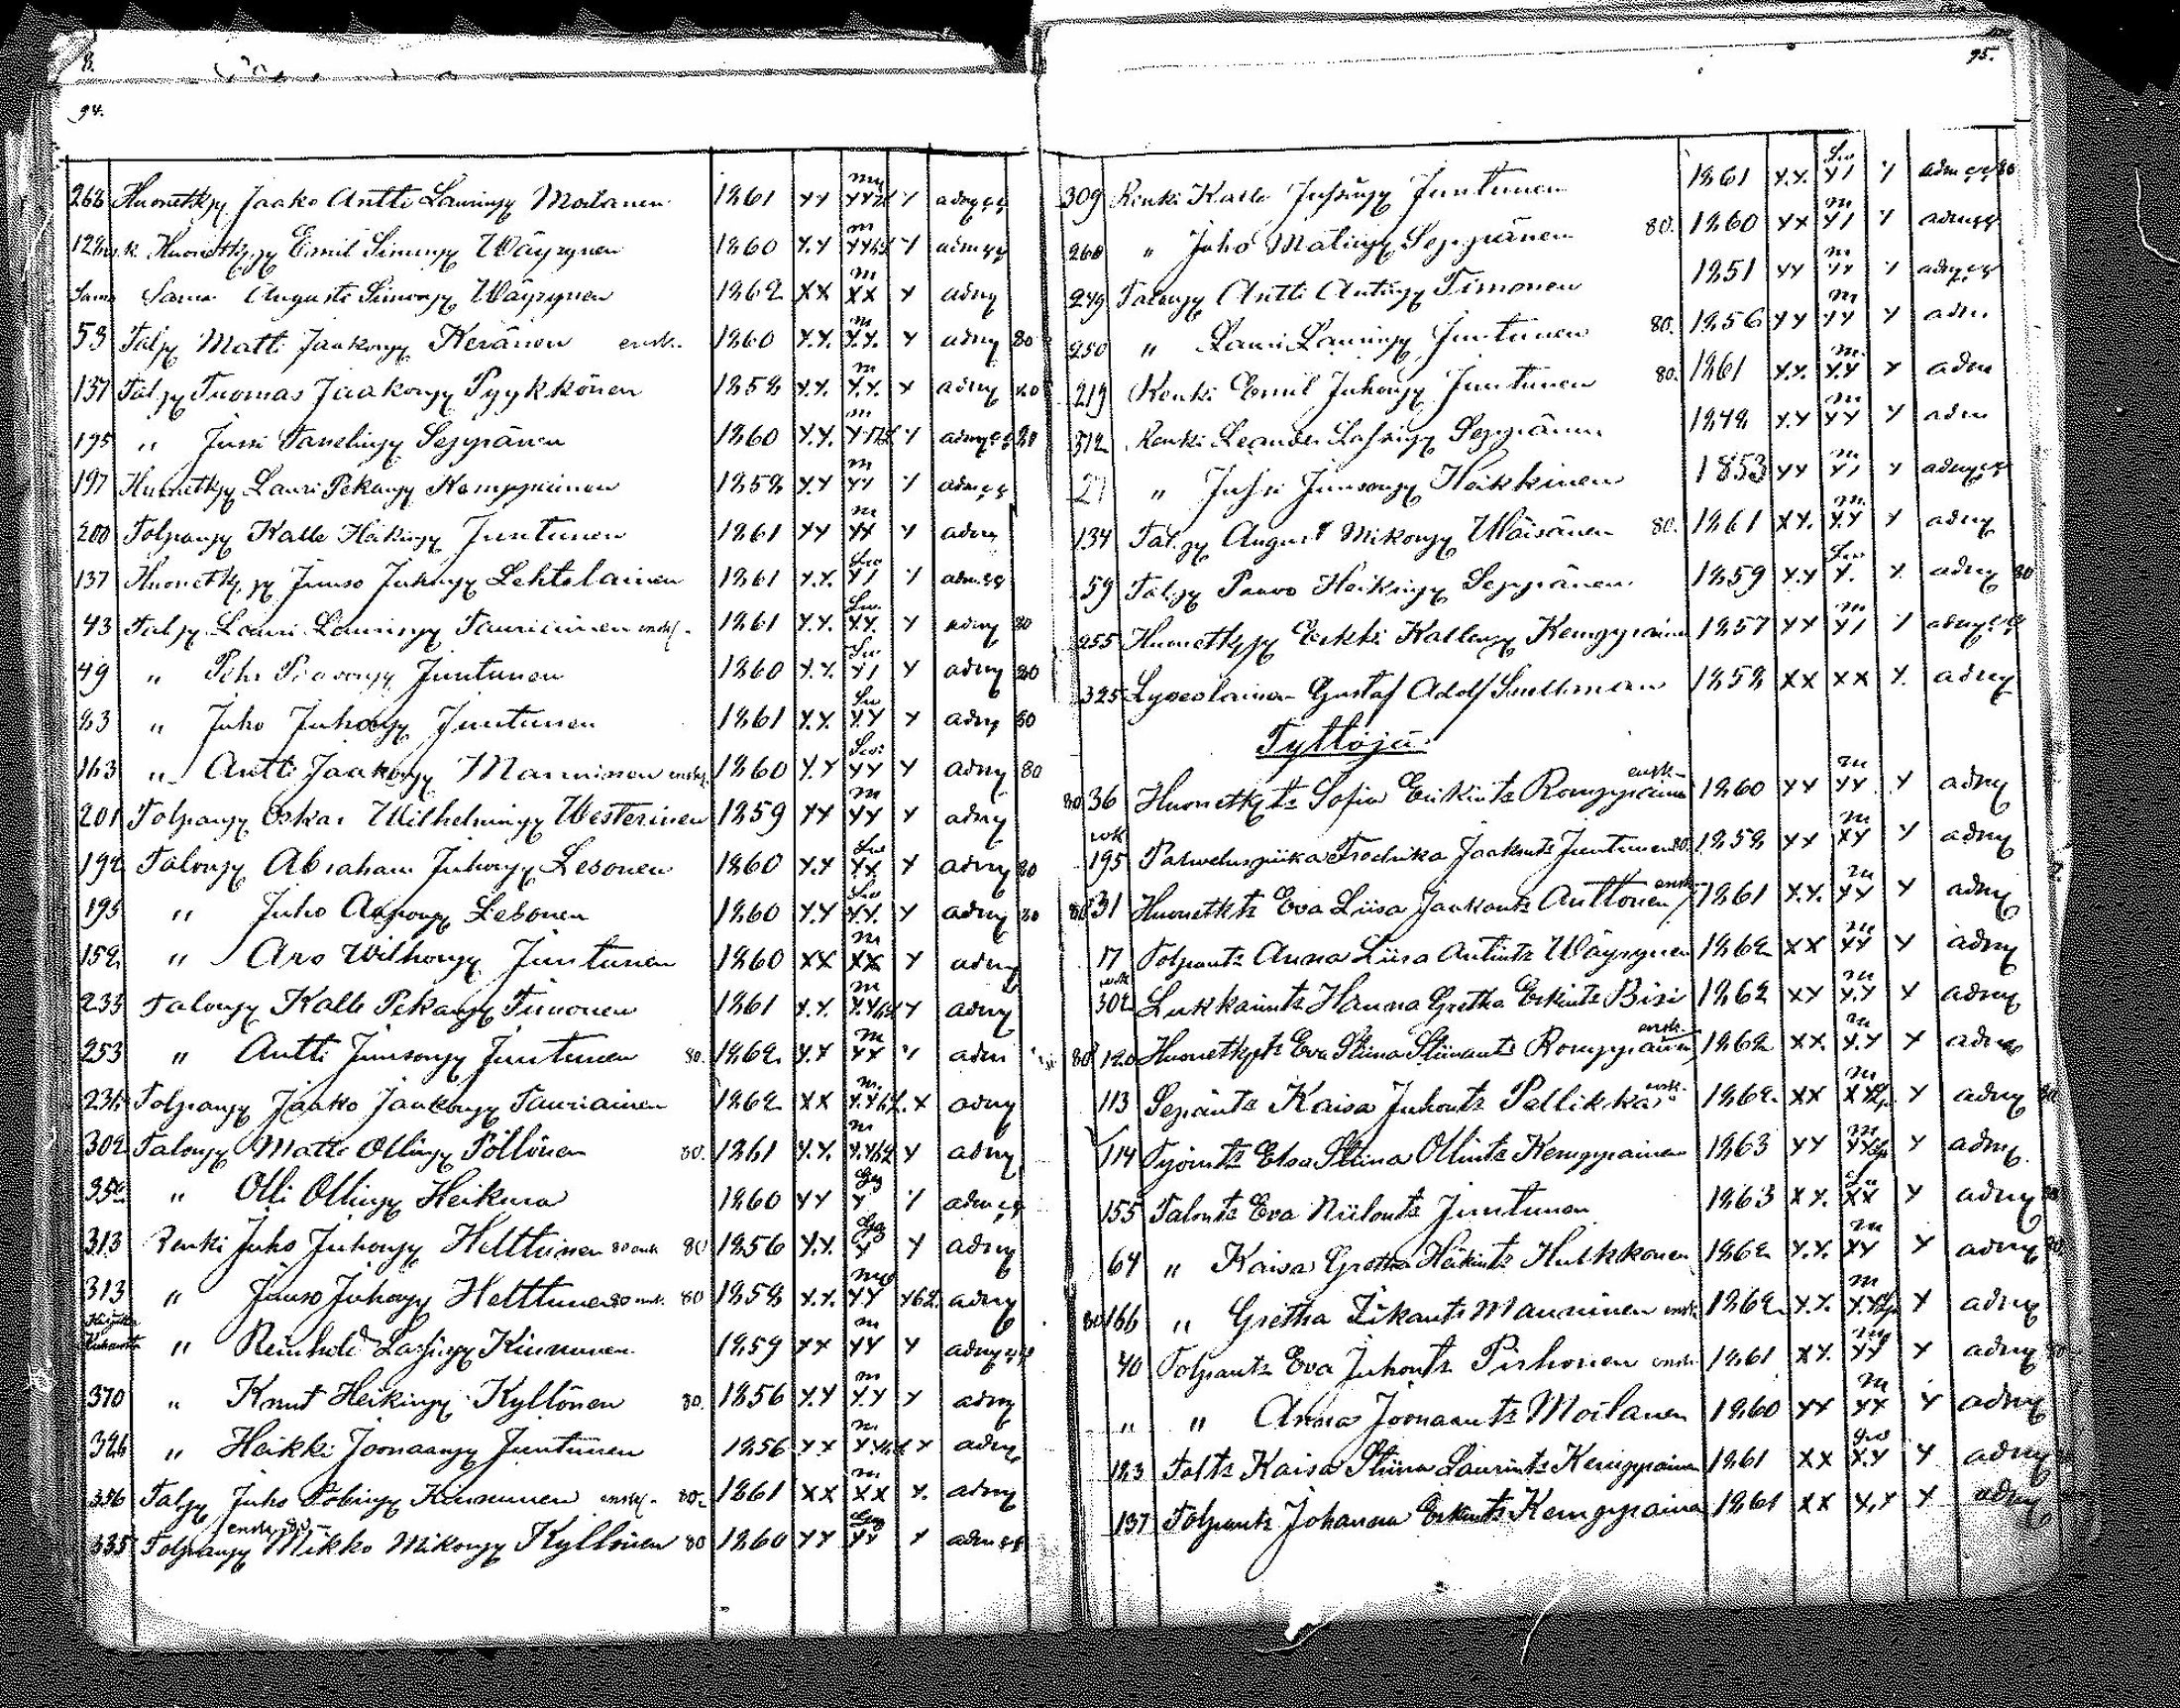 94.
268 Huonetkpj Jaako Antti Laurinpj Moilanen 1861 xx m xx x admq
128 Huonetkpj Emil Simonpj Wäyrynen 1860 x.x m x admq
Sama Sama August Simonpj Wäyrynen 1862 xx m xx x admq
53 Talpj Matti Jaakonpj Keränen ensk. 1860 x.x. m x.x. x admq 80
137 Talpj Tuomas Jaakonpj Pyykkönen 1858 x.x. m x.x. x admq 80
195 " Jussi Tanelinpj Seppänen 1860 x.x. m x
197 Huonetkpj Lauri Pekanpj Kemppainen 1858 x.x m xx x
200 Tolpanpj Kalle Heikinpj Juntunen 1861 xx m xx x admq
137 Huonetkpj Juuso Juhonpj Lehtolainen 1861 x.x. x
43 Talpj Lauri Laurinpj Tauriainen ensk. 1861 x.x. xx. x admq 80
49 " Pekr Paavonpj Juntunen 1860 x.x. x admq 80
83 " Juho Juhonpj Juntunen 1861 x.x. x.x x admq 80
163 " Antti Jaakonpj Manninen ensk. 1860 x.x xx x admq 80
201 Tolpanpj Oskar Wilhelminpj Westerinen 1859 xx m xx x admq
192 Talonpj Abraham Juhonpj Lesonen 1860 x.x xx x admq 80
193 " Juho Aaponpj Lesonen 1860 x.x x.x. x admq 80
152 " Aro Wilhonpj Juntunen 1860 xx m xx x admq
233 Talonpj Kalle Pekanpj Timonen 1861 x.x. m x admq
253 " Antti Juusonpj Juntunen 80. 1862 x.x m xx x adm
236 Tolpanpj Jaako Jaakonpj Tauriainen 1862 xx m x admq
302 Talonpj Matti Ollinpj Pöllönen 80. 1861 x.x. m x admq
352 " Olli Ollinpj Heikura 1860 xx x x
313 Renki Juho Juhonpj Helttunen 80 1856 x.x. x x admq
313 " Juuso Juhonpj Helttunen 80 1858 x.x. xx x62. admq
" Reinhold Lassinpj Kinnunen 1859 xx m xx x
370 " Knut Heikinpj Kyllönen 80. 1856 x.x m x.x x admq
326 " Heikki Joonaanpj Juntunen 1856 xx m x admq
336 Talpj Juho Tobinpj Kinnunen ensk. 80. 1861 xx m xx x. admq
335 Tolpanpj Mikko Mikonpj Kyllönen 80 1860 xx xx x
95.
309 Renki Kalle Jussinpj Juntunen 1861 x.x. x
260 " Juho Matinpj Seppänen 80. 1860 xx m x
249 Talonpj Antti Antinpj Timonen 1851 xx m xx x
250 " Lauri Laurinpj Juntunen 80. 1856 xx m xx x adm
219 Renki Emil Juhonpj Juntunen 80. 1861 x.x. m x.x x adm
312 Renki Leander Lassinpj Seppänen 1848 x.x m xx x adm
27 " Jussi Juusonpj Heikkinen 1853 xx m x
134 Talpj August Mikonpj Wäisänen 80. 1861 xx. m x.x x admq
59 Talpj Paavo Heikinpj Seppänen 1859 x.x x. x admq 80
255 Huonetkpj Erkki Kallenpj Kemppainen 1857 xx m x
325 Lyseolainen Gustaf Adolf Snellman 1858 xx xx x. admq
Tyttöjä.
80 36 Huonetkpts Sofia Erikints Romppainen ensk. 1860 xx m xx x admq
195 Palveluspiika Fredrika Jaakonts Juntunen 80. 1858 xx m xx x admq
80 31 Huonetkts Eva Liisa Jaakonts Anttonen ensk. 1861 x.x. m xx x admq
17 Tolpants Anna Liisa Antints Wäyrynen 1862 xx m xx x admq
302 Lukkarints Hanna Gretha Erkints Bisi 1862 xx m x.x x admq
80 120 Huonetkpts Eva Stiina Stiinants Romppainen ensk. 1862 xx. m x.x x admq
113 Sepänts Kaisa Juhonts Pellikka ensk. 1862 xx m x admq 80
114 Työmts Elsa Stiina Ollints Kemppainen 1863 xx m x admq
155 Talonts Eva Niilonts Juntunen 1863 xx. xx x admq 80
64 " Kaisa Gretha Heikints Hulkkonen 1862 x.x. m xx x admq 80
80 166 " Gretha Iikants Manninen ensk. 1862 x.x. m x admq
40 Tolpants Eva Juhonts Pirhonen ensk. 1861 xx. m xx x admq 80
" " Anna Joonaants Moilanen 1860 xx m xx x admq
123 Talts Kaisa Stiina Laurints Kemppainen 1861 xx x.x x admq
137 Tolpants Johanna Erkints Kemppainen 1861 xx x.x x admq